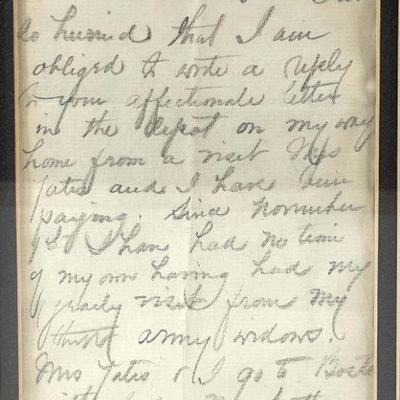 so hurried that I am
obliged to write a reply
to your affectionate letter
in the depot on my way
home from a visit Mrs
Yates and I have been
paying. Since November
I have had no time
of my own having had my
visit from my
army widows.
Mrs Yates & I go to